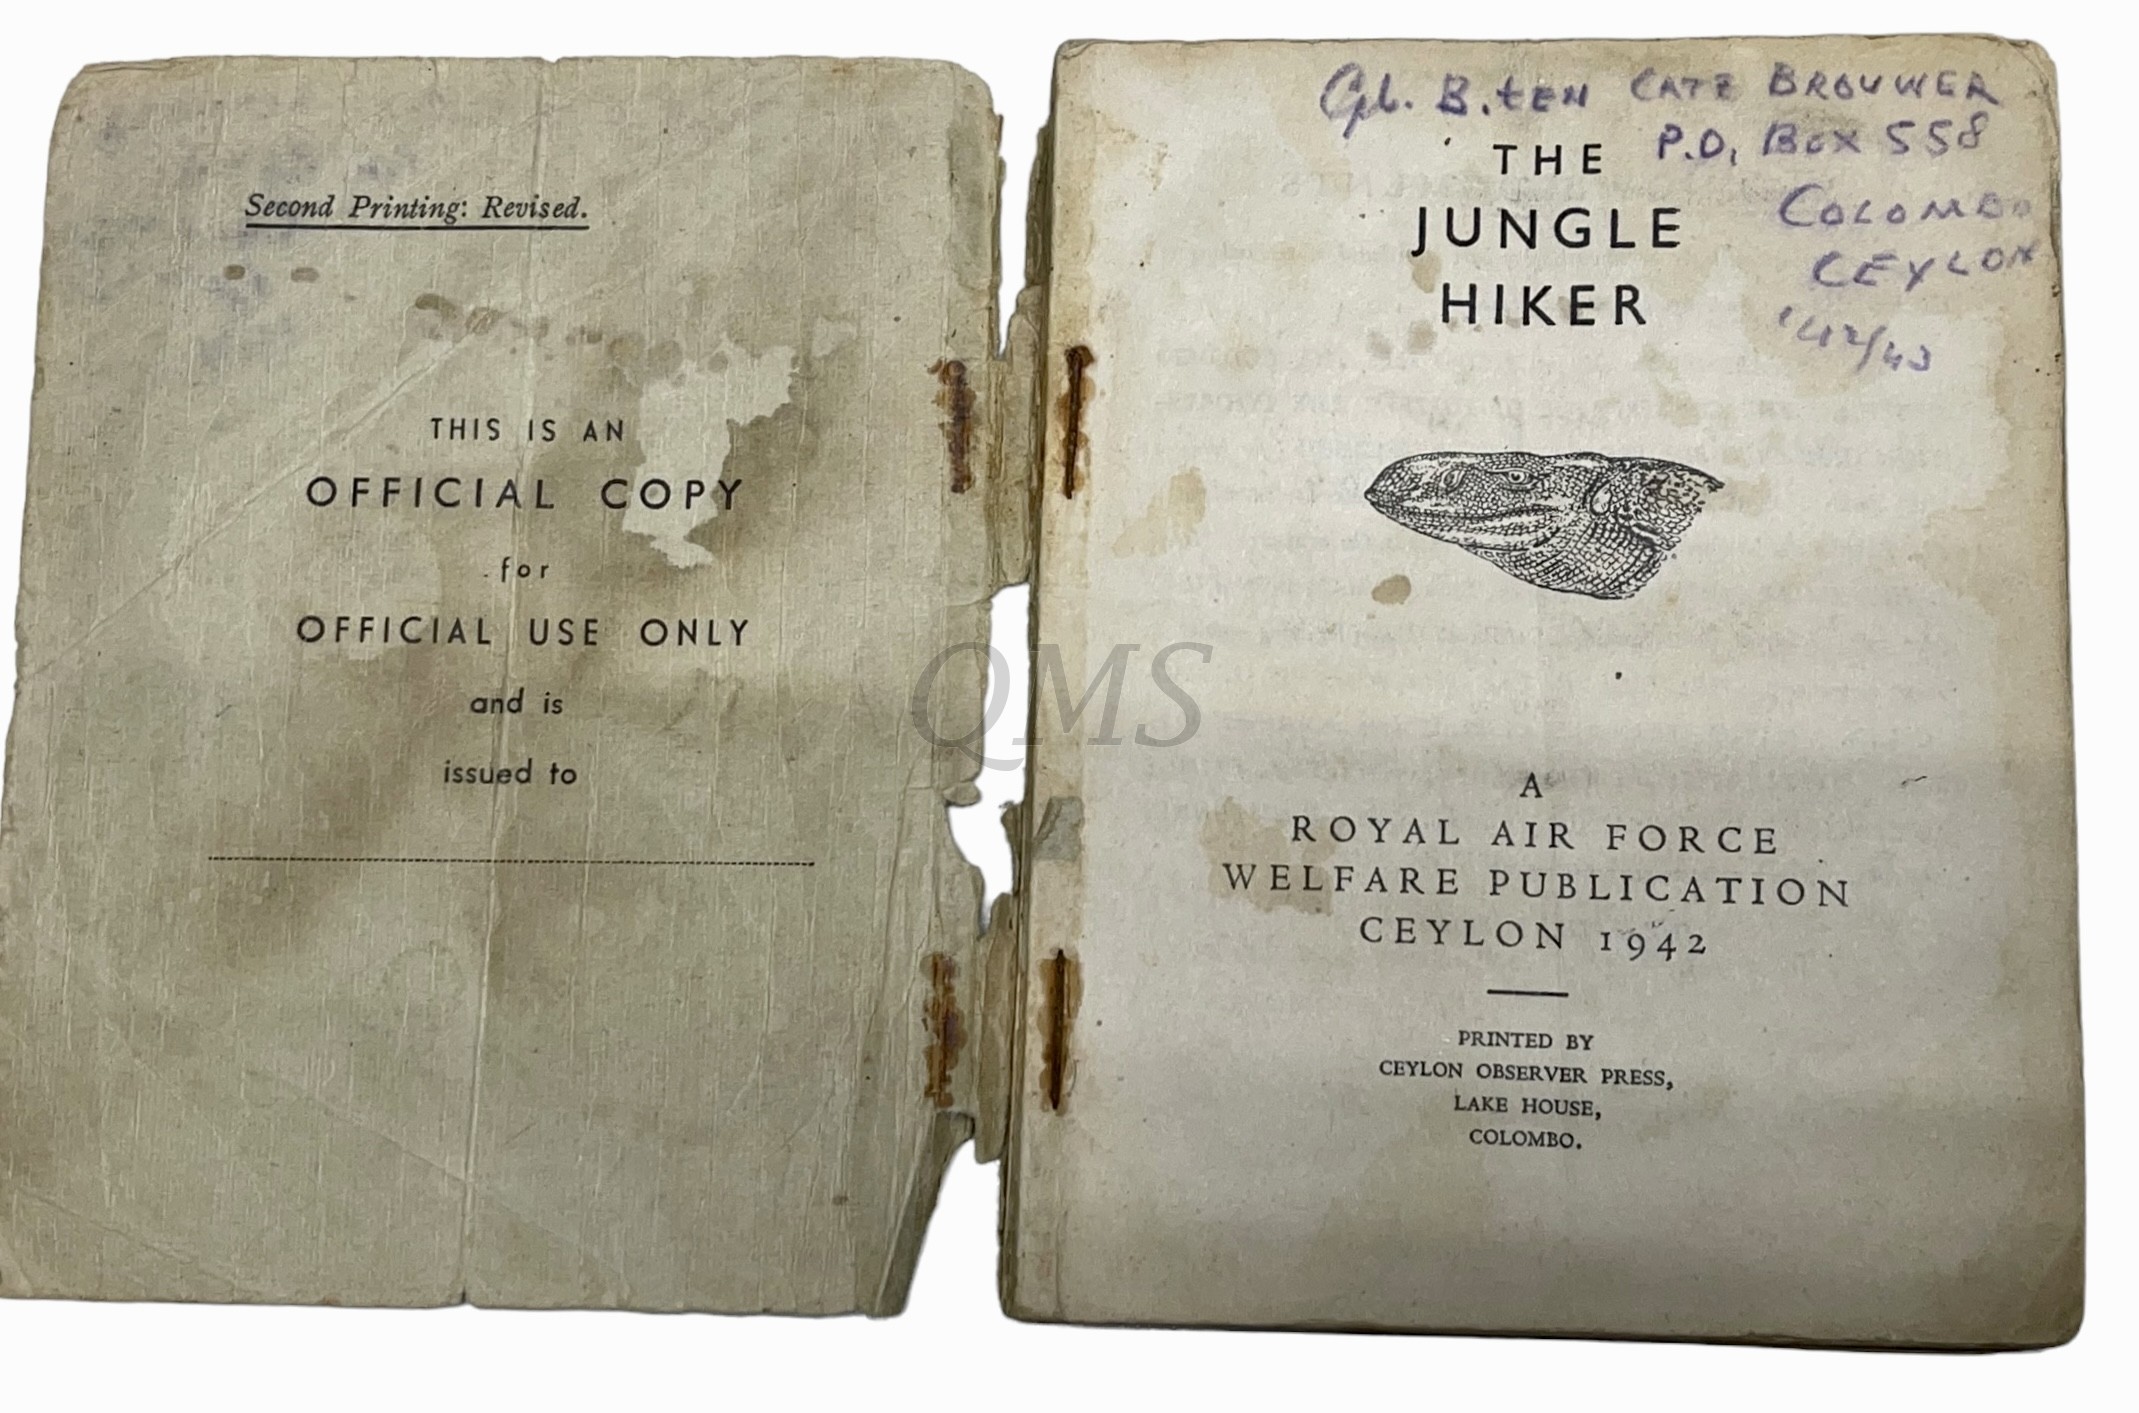 Second Printing: Revised.
THIS IS AN
OFFICIAL COPY
for
OFFICIAL USE ONLY
and is
issued to
Cpl. B. tEN CATE BROUWER
P.O. BOX 558
COLOMBO
CEYLON
'42/43
THE
JUNGLE
HIKER
QMS
A
ROYAL AIR FORCE
WELFARE PUBLICATION
CEYLON 1942
PRINTED BY
CEYLON OBSERVER PRESS,
LAKE HOUSE,
COLOMBO.